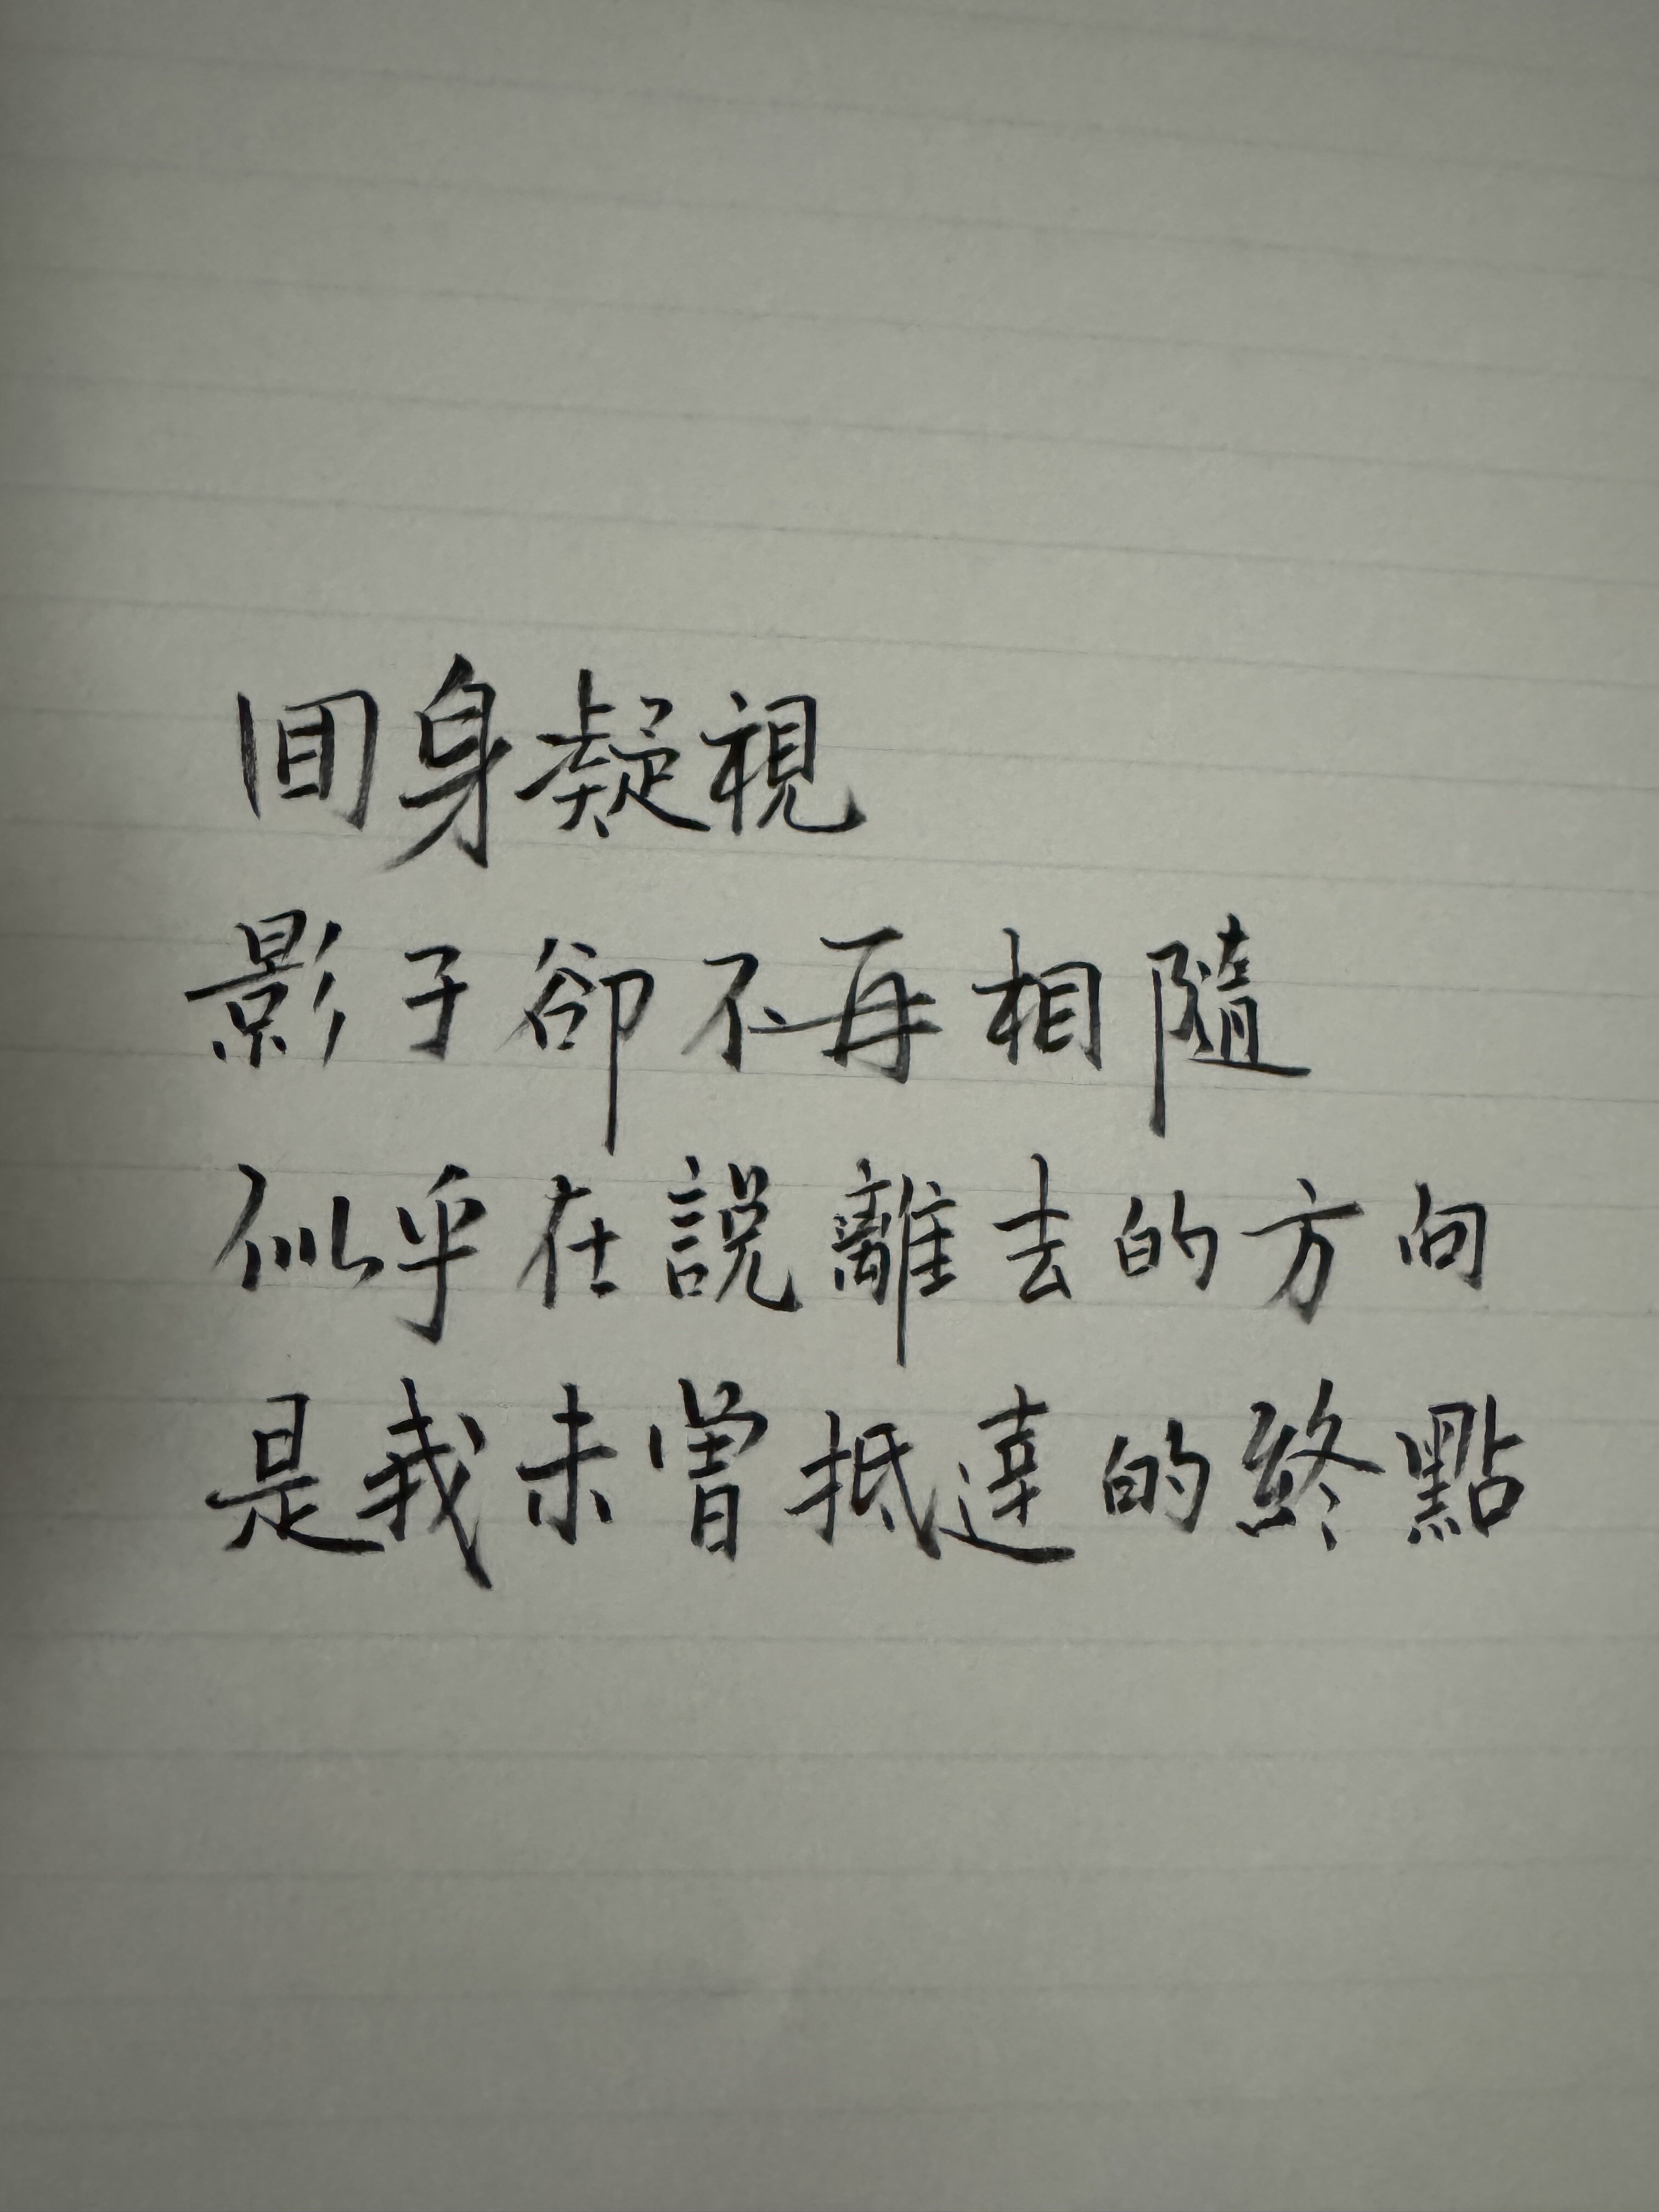 回身凝視
影子卻不再相隨
似乎在説離去的方向
是我未曾抵達的終點